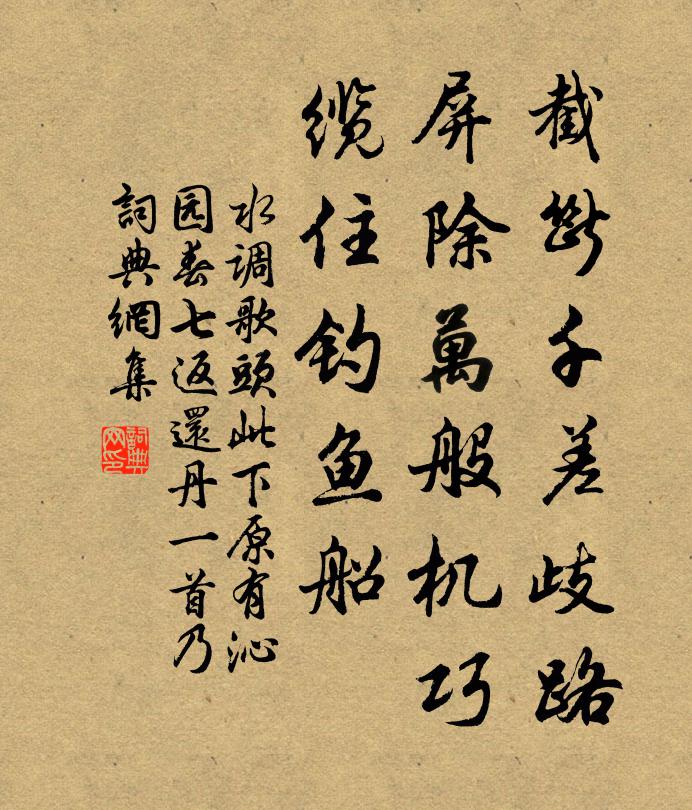 截斷千差歧路
屏除萬般机巧
缆住钓鱼船
水调歌頭此下原有沁
园春七返還丹一首乃
詞典網集
詞典
网印